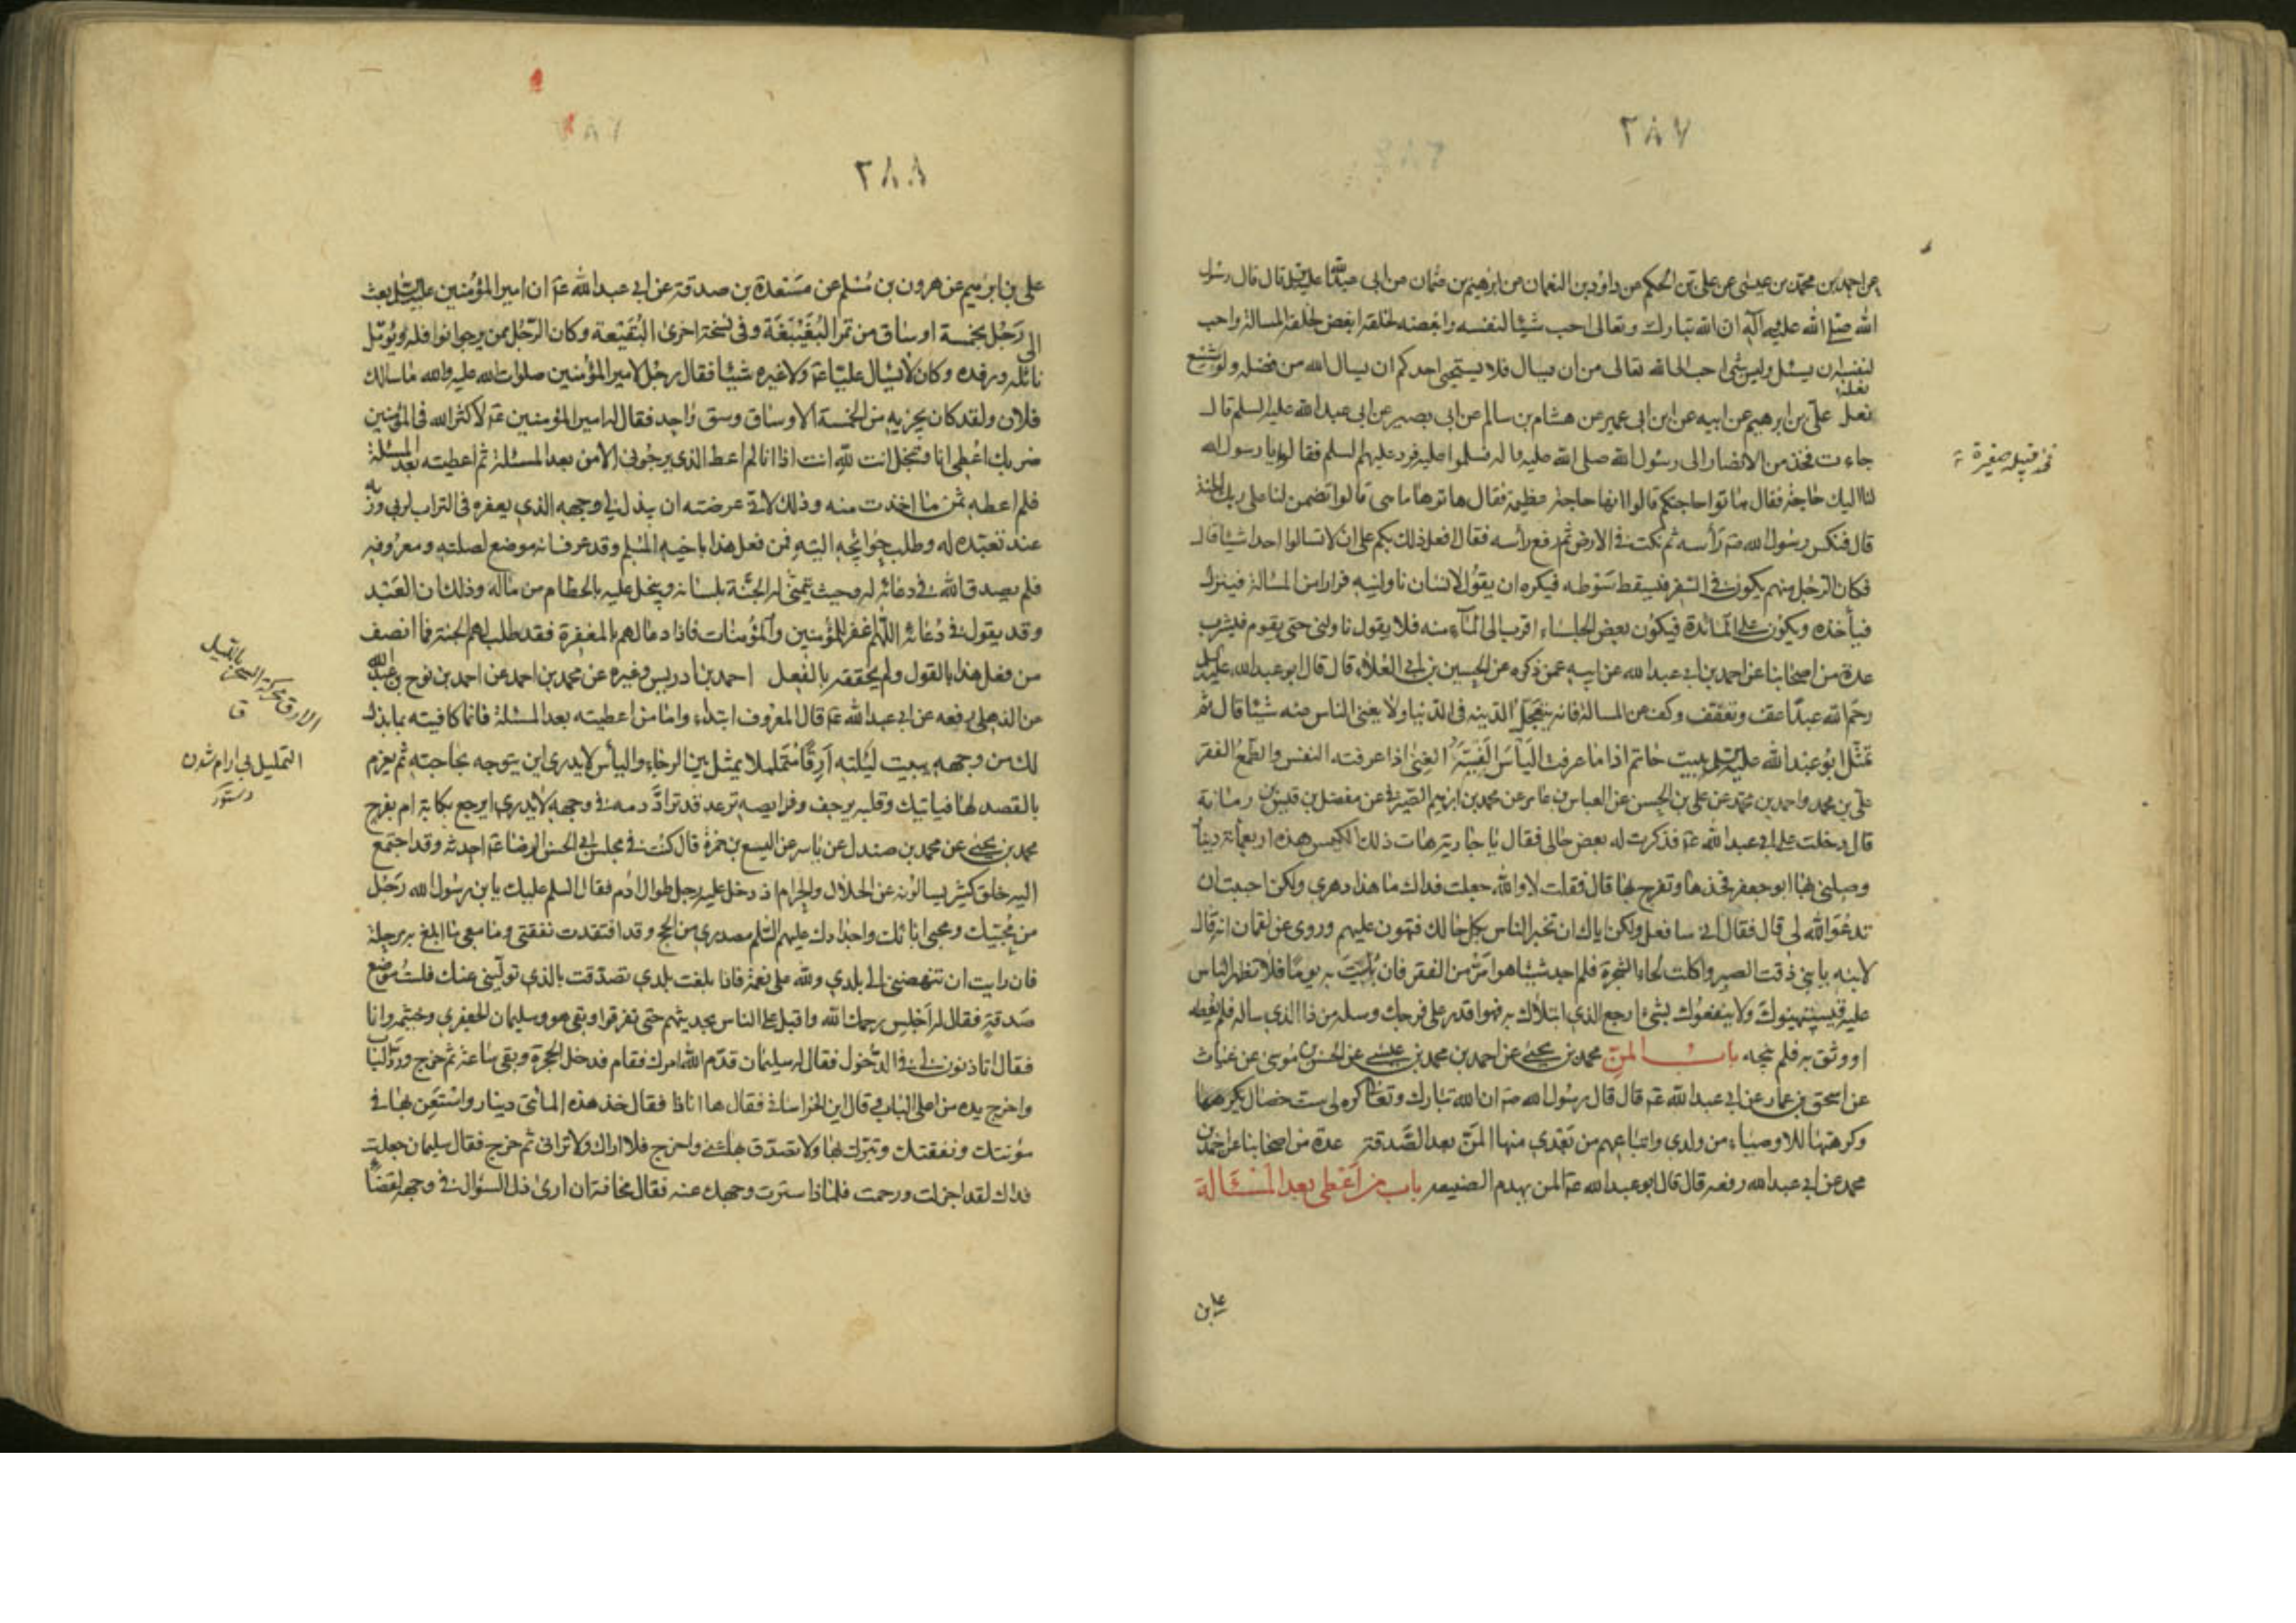 ٢٨٧
عن احمد بن محمد بن عيسى عن علي بن الحكم عن داود بن النعمان عن ابرهيم بن عثمان عن ابي عبد الله عليه السلم قال قال رسول
الله صلى الله عليه وآله ان الله تبارك وتعالى احب شيئا لنفسه وابغضه لخلقه ابغض لخلقه المسالة واحب
لنفسه ان يسئل وليس شئ احب الى الله تعالى من ان يسال فلا يستحيي احدكم ان يسال الله من فضله ولو شسع
نعله
نعل علي بن ابرهيم عن ابيه عن ابن ابي عمير عن هشام بن سالم عن ابي بصير عن ابي عبد الله عليه السلم قال
جاءت فخذ من الانصار الى رسول الله صلى الله عليه واله فسلموا عليه فرد عليهم السلم فقالوا يا رسول الله
لنا اليك حاجة فقال هاتوا حاجتكم قالوا انها حاجة عظيمة فقال هاتوها ما هي قالوا تضمن لنا على ربك الجنة
قال فنكس رسول الله صه رأسه ثم نكت في الارض ثم رفع رأسه فقال افعل ذلك بكم على ان لا تسالوا احدا شيئا قال
فكان الرجل منهم يكون في السفر فيسقط سوطه فيكره ان يقول لانسان ناولنيه فرارا من المسالة فينزل
فيأخذه ويكون على المائدة فيكون بعض الجلساء اقرب الى الماء منه فلا يقول ناولني حتى يقوم فيشرب
عدة من اصحابنا عن احمد بن ابي عبد الله عن ابيه عمن ذكره عن الحسين بن ابي العلاء قال قال ابو عبد الله عليه السلم
رحم الله عبدا عف وتعفف وكف عن المسالة فانه يتعجل الدنية في الدنيا ولا يغني الناس عنه شيئا قال ثم
تمثل ابو عبد الله عليه السلم ببيت حاتم اذا ما عرفت اليأس الفيته الغنى اذا عرفته النفس والطمع الفقر
علي بن محمد واحمد بن محمد عن علي بن الحسن عن العباس بن عامر عن محمد بن ابرهيم الصيرفي عن مفضل بن قيس بن رمانة
قال دخلت على ابي عبد الله عه فذكرت له بعض حالي فقال يا جارية هات ذلك الكيس هذه اربعمائة دينار
وصلني بها ابو جعفر فخذها وتفرج بها قال فقلت لا والله جعلت فداك ما هذا دهري ولكن احببت ان
تدعو الله لي قال فقال اني سافعل ولكن اياك ان تخبر الناس بكل حالك فتهون عليهم وروى عن لقمان انه قال
لابنه يا بني ذقت الصبر واكلت لحاء الشجرة فلم اجد شيئا هو امر من الفقر فان بليت به يوما فلا تظهر الناس
عليه فيستهينوك ولا ينفعوك بشئ ارجع الى الذي ابتلاك به فهو اقدر على فرجك وسله من ذا الذي ساله فلم يعطه
او وثق به فلم ينجه باب المن محمد بن يحيى عن احمد بن محمد بن عيسى عن الحسن بن موسى عن غياث
عن اسحق بن عمار عن ابي عبد الله عه قال قال رسول الله صه ان الله تبارك وتعالى كره لي ست خصال
وكرهتها للاوصياء من ولدي واتباعهم من بعدي منها المن بعد الصدقة عدة من اصحابنا عن احمد بن
محمد عن ابي عبد الله رفعه قال قال ابو عبد الله عه المن يهدم الصنيعة باب من اعطى بعد المسئالة
علي بن
فخذ قبيلة صغيرة
٢٨٨
علي بن ابرهيم عن هرون بن مسلم عن مسعدة بن صدقة عن ابي عبد الله عه ان امير المؤمنين عليه السلم بعث
الى رجل بخمسة اوساق من تمر البغيبغة وفي نسخة اخرى البقيعة وكان الرجل ممن يرجوا نوافله ويؤمل
نائله ورفده وكان لا يسال عليا عه ولا غيره شيئا فقال رجل لامير المؤمنين صلوات الله عليه والله ما سالك
فلان ولقد كان يجزيه من الخمسة الاوساق وسق واحد فقال له امير المؤمنين عه لا كثر الله في المؤمنين
ضربك اعطي انا وتبخل انت لله انت اذا انا لم اعط الذي يرجوني الا من بعد المسئلة ثم اعطيته بعد المسئلة
فلم اعطه ثمن ما اخذت منه وذلك لاني عرضته ان يبذل لي وجهه الذي يعفره في التراب لربي وربه
عند تعبده له وطلب حوائجه اليه فمن فعل هذا باخيه المسلم وقد عرف انه موضع لصلته ومعروفه
فلم يصدق الله في دعائه له حيث يتمنى له الجنة بلسانه ويبخل عليه بالحطام من ماله وذلك ان العبد
وقد يقول في دعائه اللهم اغفر للمؤمنين والمؤمنات فاذا دعا لهم بالمغفرة فقد طلب لهم الجنة فما انصف
من فعل هذا بالقول ولم يحققه بالفعل احمد بن ادريس وغيره عن محمد بن احمد عن احمد بن نوح بن عبد الله
عن الذهلي رفعه عن ابي عبد الله عه قال المعروف ابتداء واما من اعطيته بعد المسئلة فانما كافيته بما بذل
لك من وجهه يبيت ليلته ارقا متململا يمثل بين الرجاء والياس لا يدري اين يتوجه بحاجته ثم يعزم
بالقصد لها فياتيك وقلبه يرجف وفرايصه ترعد قد ترادّ دمه في وجهه لا يدري ايرجع بكابة ام بفرح
محمد بن يحيى عن محمد بن صندل عن ياسر عن اليسع بن حمزة قال كنت في مجلس ابي الحسن الرضا عه احدثه وقد اجتمع
اليه خلق كثير يسالونه عن الحلال والحرام اذ دخل عليه رجل طوال ادم فقال السلم عليك يا بن رسول الله رجل
من محبيك ومحبي ابائك واجدادك عليهم السلم مصدري من الحج وقد افتقدت نفقتي وما معي ما ابلغ به مرحلة
فان رايت ان تنهضني الى بلدي ولله علي نعمة فاذا بلغت بلدي تصدقت بالذي توليني عنك فلست موضع
صدقة فقال له اجلس رحمك الله واقبل على الناس يحدثهم حتى تفرقوا وبقي هو وسليمان الجعفري وخيثمة وانا
فقال اتاذنون لي في الدخول فقال له سليمان قدم الله امرك فقام فدخل الحجرة وبقي ساعة ثم خرج ورد الباب
واخرج يده من اعلى الباب وقال اين الخراساني فقال ها انا ذا فقال خذ هذه المائتي دينار واستعن بها في
مؤنتك ونفقتك وتبرك بها ولا تصدق بها عني واخرج فلا اراك ولا تراني ثم خرج فقال سليمان جعلت
فداك لقد اجزلت ورحمت فلماذا سترت وجهك عنه فقال مخافة ان ارى ذل السؤال في وجهه لقضاء
الارق محركة السهر بالليل
ق
التململ بي ارام شدن
دستور